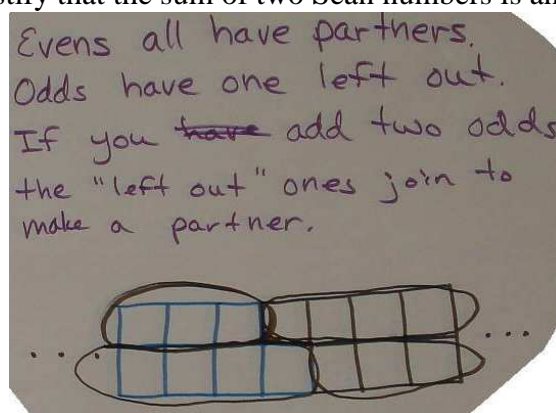 stify that the sum of two Sean numbers is an
Evens all have partners.
Odds have one left out.
If you have add two odds
the "left out" ones join to
make a partner.